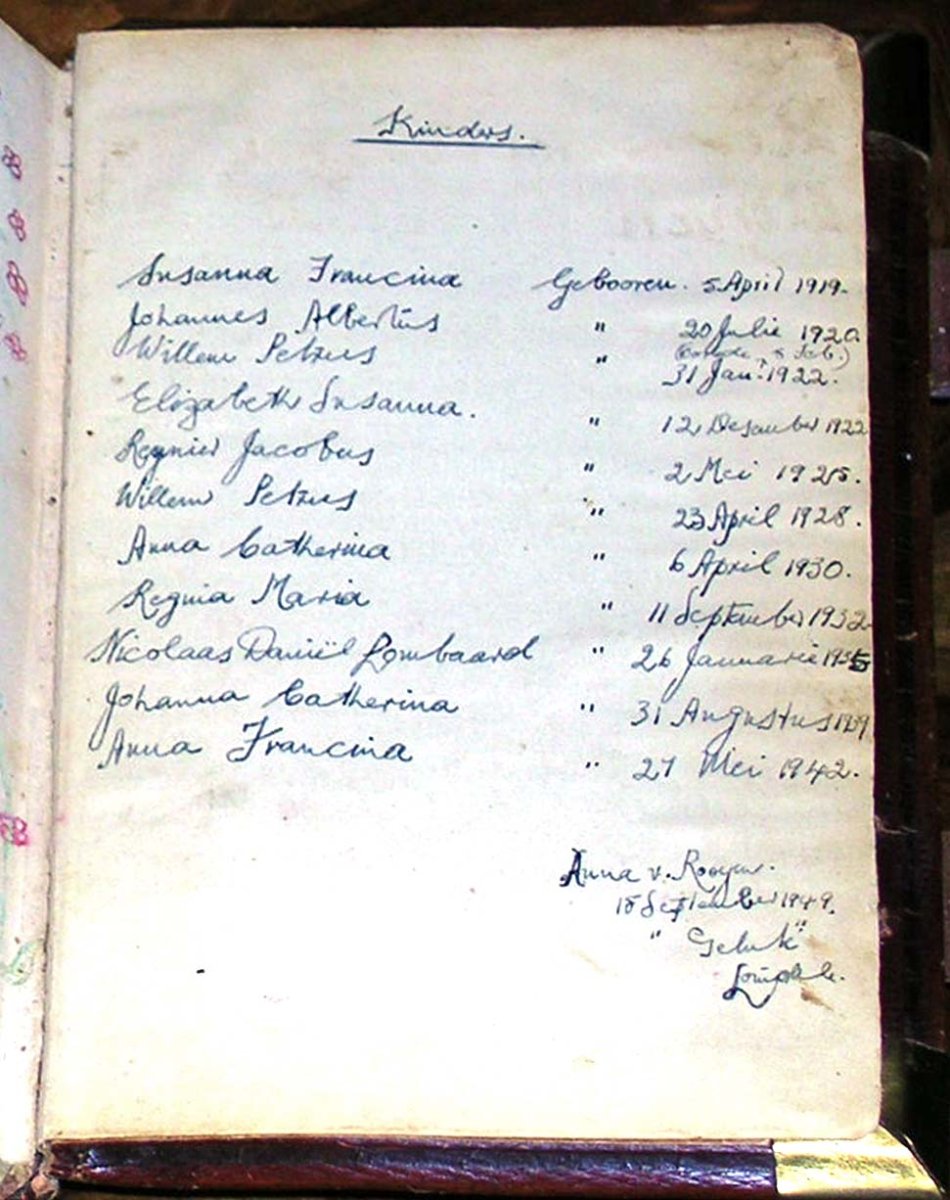 Kinders.
Susanna Francina Gebooren. 5 April 1919.
Johannes Albertus " 20 Julie 1920.
Willem Petrus " 31 Jan. 1922.
Elizabeth Susanna. " 12 Desember 1922
Regnier Jacobus " 2 Mei 1925.
Willem Petrus " 23 April 1928.
Anna Catherina " 6 April 1930.
Regina Maria " 11 September 1932
Nicolaas Daniël Lombaard " 26 Januarie
Johanna Catherina " 31 Augustus
Anna Francina " 27 Mei 1942.
Anna v. Rooyen.
September 1949.
" Geluk "